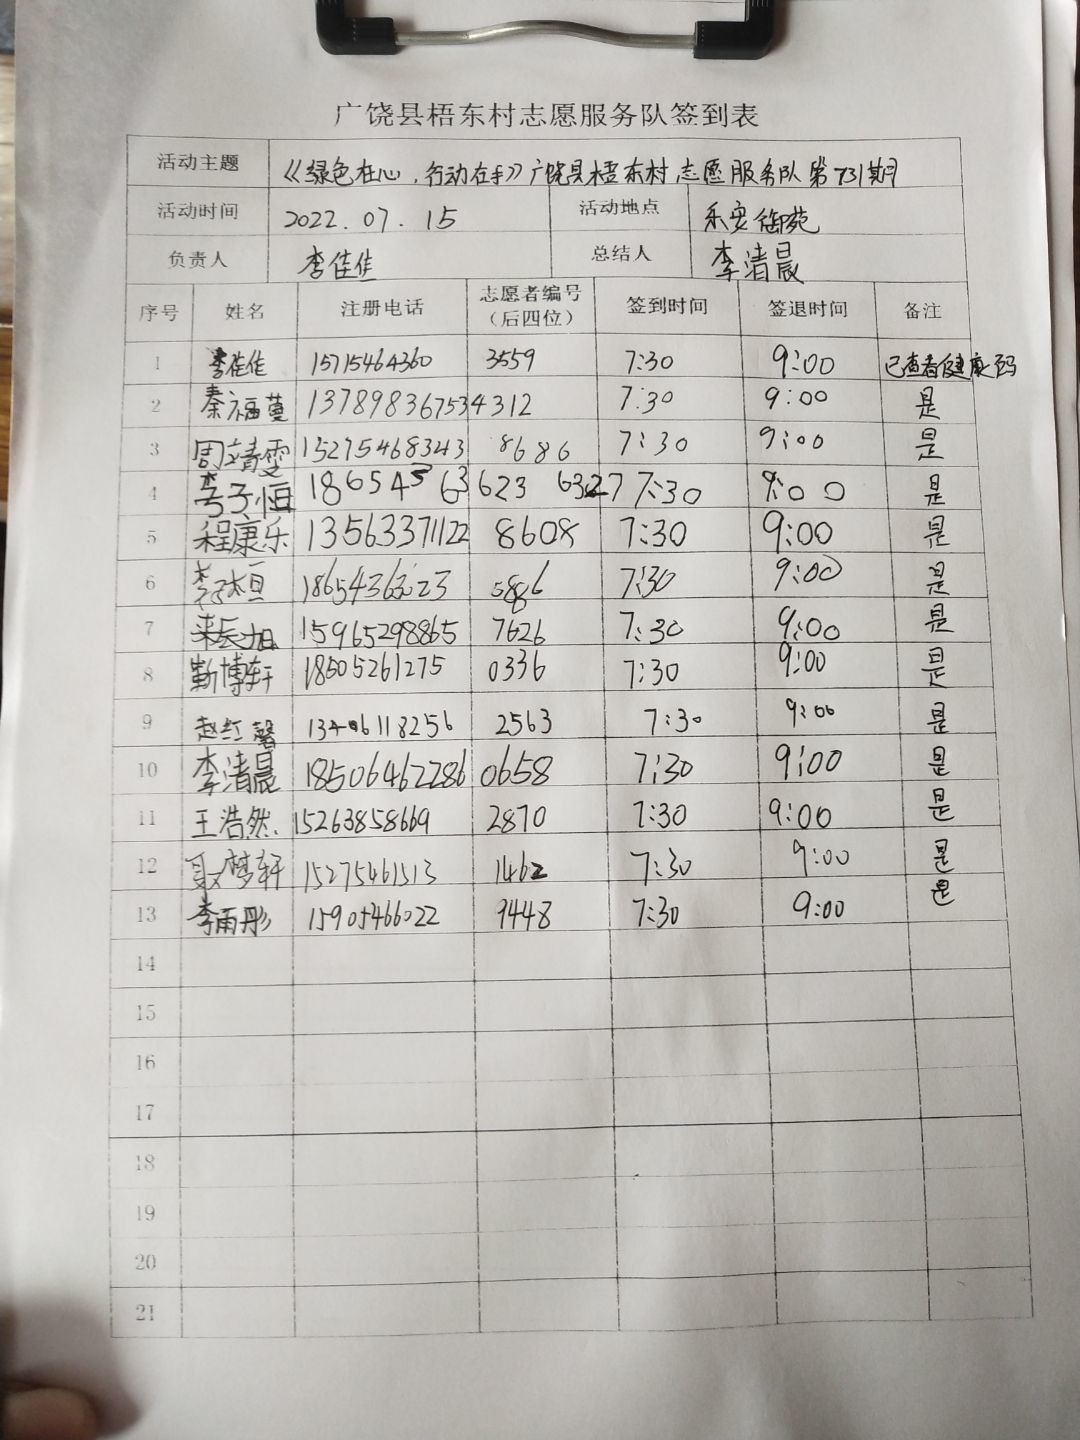 广饶县梧东村志愿服务队签到表
活动主题 《绿色在心，行动在手》广饶县梧东村志愿服务队第731期
活动时间 2022.07.15 活动地点 乐安御苑
负责人 李佳佳 总结人 李清晨
序号 姓名 注册电话 志愿者编号（后四位） 签到时间 签退时间 备注
1 李佳佳 15715464360 3559 7:30 9:00 已查看健康码
2 秦福蔓 13789836753 4312 7:30 9:00 是
3 周靖雯 15275468343 8686 7:30 9:00 是
4 李子恒 18654363623 6327 7:30 9:00 是
5 程康乐 13563371122 8608 7:30 9:00 是
6 7:30 9:00 是
7 15965298865 7626 7:30 9:00 是
8 靳博轩 18505261275 0336 7:30 9:00 是
9 赵红馨 13406118256 2563 7:30 9:00 是
10 李清晨 18506462286 0658 7:30 9:00 是
11 王浩然 15263858669 2870 7:30 9:00 是
12 梦轩 15275461513 1462 7:30 9:00 是
13 李雨彤 15905466022 9448 7:30 9:00 是
14
15
16
17
18
19
20
21